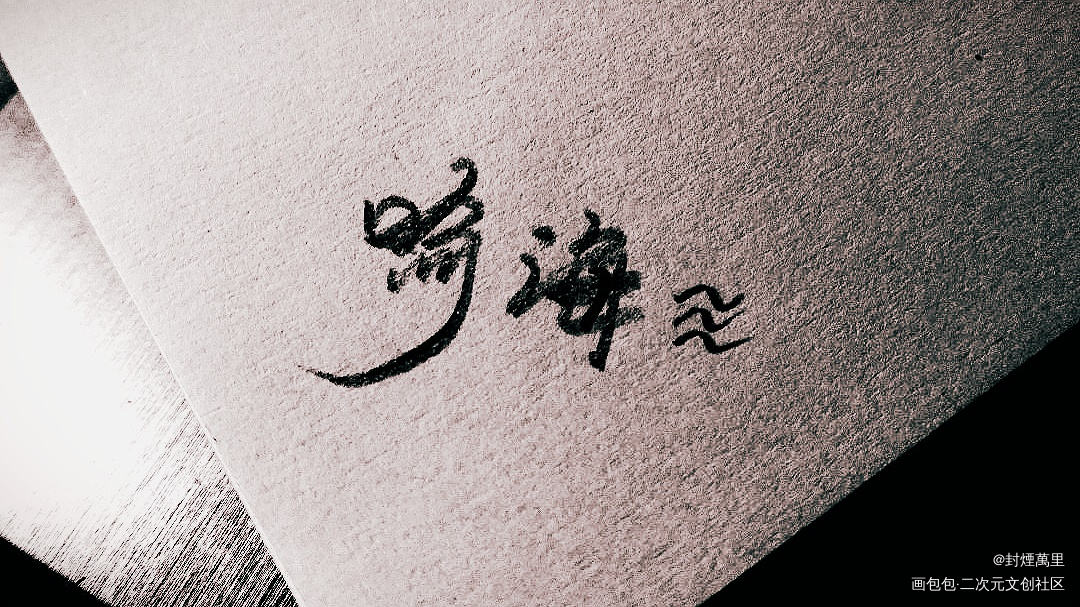 海
@封煙萬里
画包包·二次元文创社区